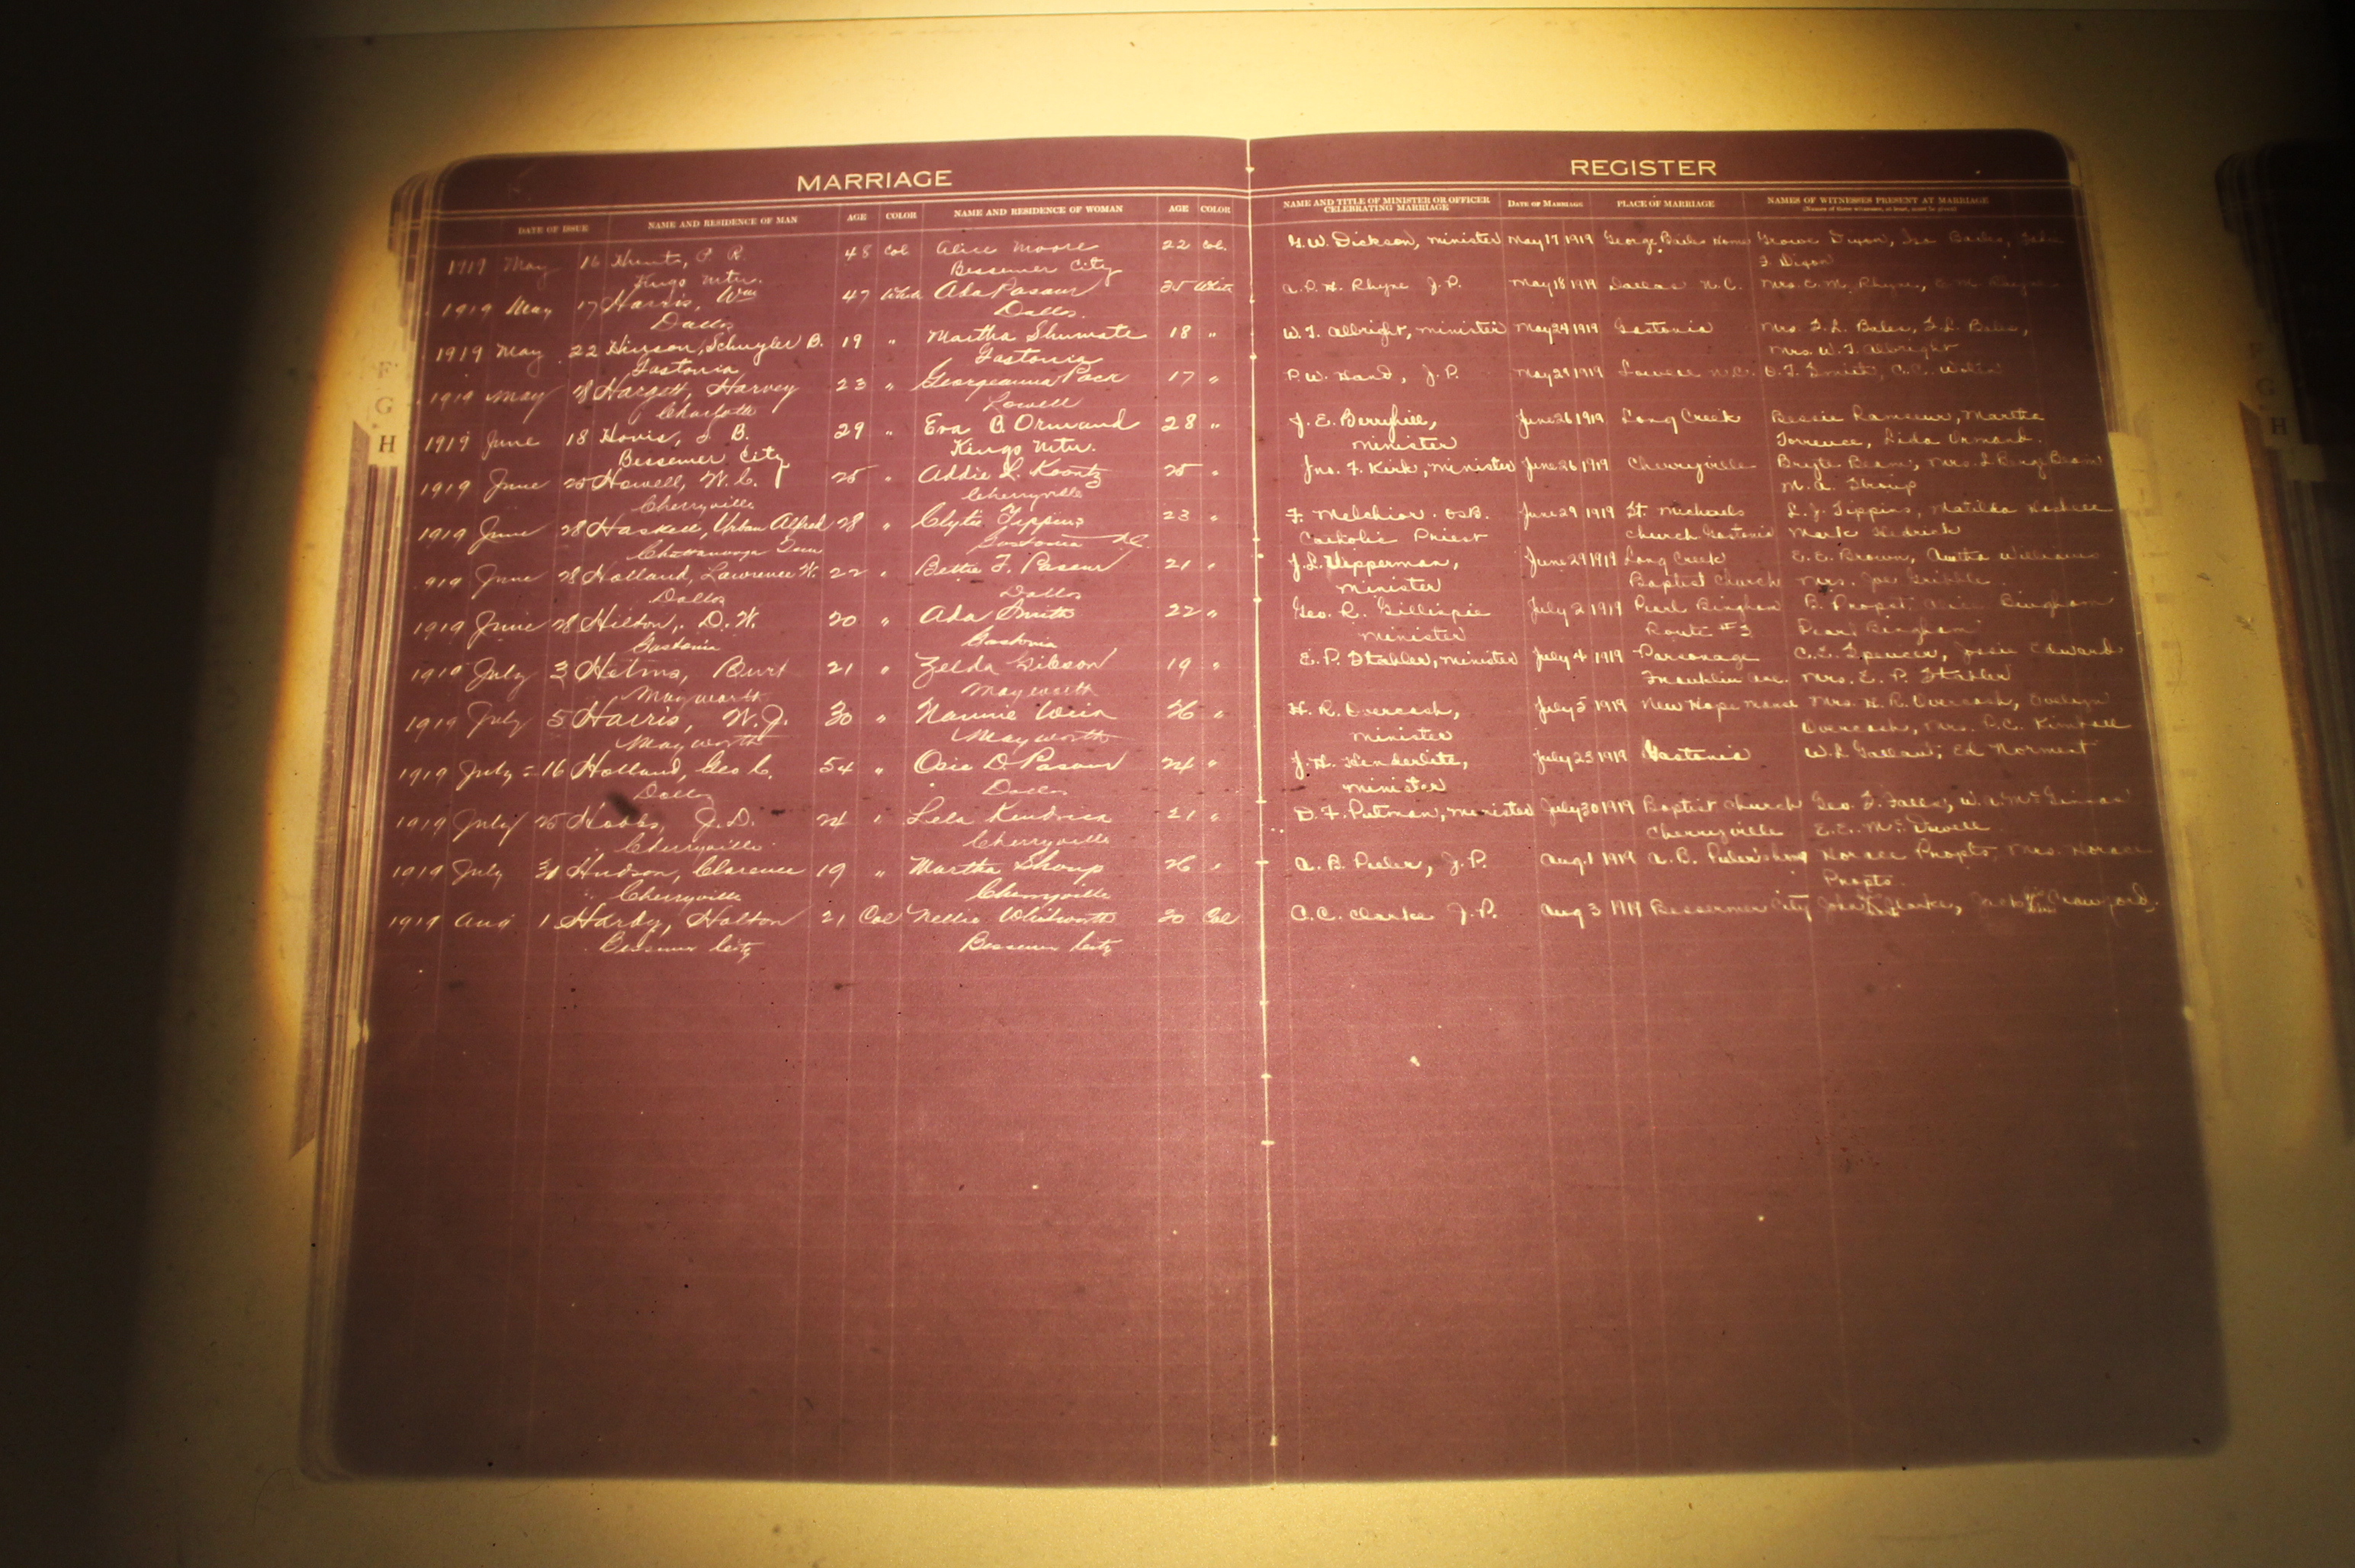 MARRIAGE
REGISTER
DATE OF ISSUE NAME AND RESIDENCE OF MAN AGE COLOR NAME AND RESIDENCE OF WOMAN AGE COLOR NAME AND TITLE OF MINISTER OR OFFICER CELEBRATING MARRIAGE DATE OF MARRIAGE PLACE OF MARRIAGE NAMES OF WITNESSES PRESENT AT MARRIAGE
1919 May 16 Hunt, P. R. 48 Col Alice Moore 22 Col. G. W. Dickson, minister May 17 1919 George Home Dixon,
Kings Mtn. Bessemer City Dixon
1919 May 17 Harris, Wm 47 White Ada Pasour 35 White A. P. H. Rhyne J. P. May 18 1919 Dallas N.C. Mrs. C. M. Rhyne, C. M. Rhyne
Dallas Dallas.
1919 May 22 Hinson, Schuyler B. 19 " Martha Shumate 18 " W. T. Albright, minister May 24 1919 Gastonia Mrs. F. L. Bales, F. L. Bales,
Gastonia Gastonia Mrs. W. T. Albright
1919 May 28 Hargett, Harvey 23 " Georgeanna Pack 17 " P. W. Hand, J. P. May 29 1919 Lowell N.C.
Charlotte Lowell
1919 June 18 Hovis, S. B. 29 " Eva B Ormand 28 " J. E. Berryhill, June 26 1919 Long Creek Bessie Ramseur, Martha
Bessemer City Kings Mtn. minister Torrence, Lida Ormand.
1919 June 25 Howell, W. C. 25 " Addie L. Koontz 25 " Jno. F. Kirk, minister June 26 1919 Cherryville Beam, Mrs.
Cherryville Cherryville
1919 June 28 Haskell, Urban Alfred 28 " Clytie Tippins 23 " F. Melchior. O.S.B. June 29 1919 St. Michaels L. J. Tippins, Matilda
Chattanooga Tenn Gastonia N.C. Catholic Priest Church Gastonia Mark Hedrick
919 June 28 Holland, Lawrence W. 22 " Bettie F. Pasour 21 " J. L. Vipperman, June 29 1919 Long Creek E. E. Brown, Williams
Dallas Dallas minister Baptist Church Mrs. Joe Gribble
1919 June 28 Hilton, D. W. 20 " Ada Smith 22 " Geo. R. Gillispie July 2 1919 Pearl Bingham B. Propst, Alice Bingham
Gastonia Gastonia minister Route #3 Pearl Bingham
1919 July 3 Helms, Burt 21 " Zelda Gibson 19 " E. P. Stabler, minister July 4 1919 Parsonage C. E. Spencer, Josie Edwards
Mayworth Mayworth Franklin Ave. Mrs. E. P. Stabler
1919 July 5 Harris, W. J. 30 " Nannie Weir 26 " H. R. Overcash, July 5 1919 New Hope Manse Mrs. H. R. Overcash, Evelyn
Mayworth Mayworth minister Overcash, Mrs. Kimball
1919 July 16 Holland, Geo C. 54 " Osie D Pasour 24 " J. H. Henderlite, July 23 1919 Gastonia W. L. Gallant, Ed Norment
Dallas Dallas minister
1919 July 25 J. D. 24 " Lela Kendrick 21 " D. F. Putman, minister July 30 1919 Baptist Church Geo. F. Falls,
Cherryville Cherryville Cherryville E. E. McDowell
1919 July 31 Hudson, Clarence 19 " Martha 26 " A. B. Peeler, J. P. Aug. 1 1919 A. B. Peeler's Horace Propts, Mrs. Horace
Cherryville Cherryville Propts.
1919 Aug 1 Hardy, Halton 21 Col Nellie Whitworth 20 Col C. C. Clarke J. P. Aug 3 1919 Bessermer City Clarke, Crawford.
Bessemer City Bessemer City
F
G
H
H